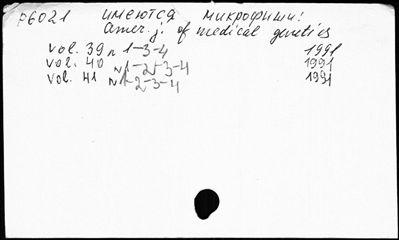 р6021 имеются микрофиши:
Amer. j. of medical genetics
vol. 39 n 1-3-4 1991
vol. 40 n 1-2-3-4 1991
vol. 41 n 1-2-3-4 1991